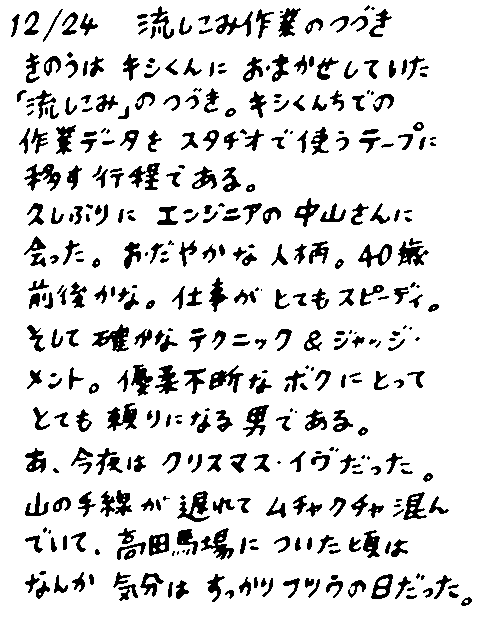 12/24 流しこみ作業のつづき
きのうは キシくんに おまかせしていた
「流しこみ」のつづき。キシくんちでの
作業データを スタヂオで使うテープに
移す行程である。
久しぶりに エンジニアの 中山さんに
会った。おだやかな人柄。40歳
前後かな。仕事が とてもスピーディ。
そして確かなテクニック&ジャッジ・
メント。優柔不断なボクにとって
とても頼りになる男である。
あ、今夜はクリスマス・イヴだった。
山の手線が遅れてムチャクチャ混ん
でいて、高田馬場についた頃は
なんか気分はすっかりフツウの日だった。